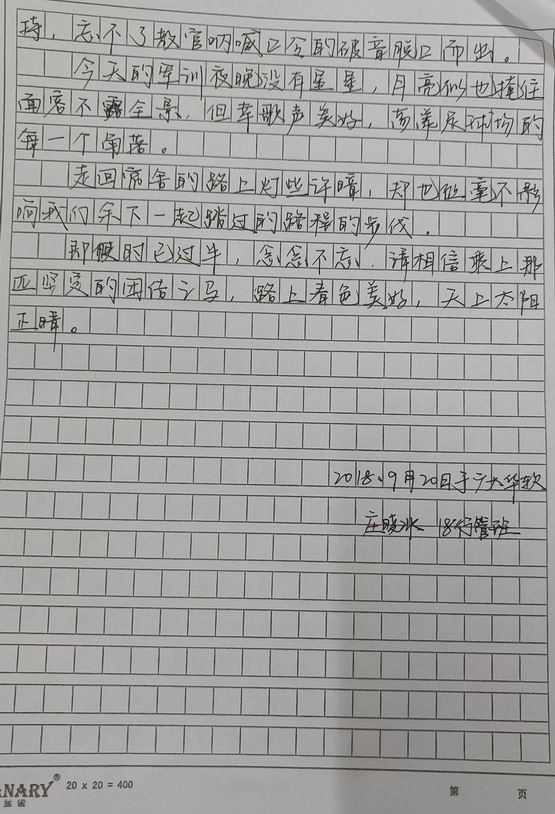 持，忘不了教官呐喊口令的破音脱口而出。
今天的军训夜晚没有星星，月亮似也掩住
面容不露全景，但幸歌声美好，荡漾足球场的
每一个角落。
走回宿舍的路上灯些许暗，却也丝毫不影
响我们余下一起踏过的路程的步伐。
即使时已过半，念念不忘，请相信乘上那
匹坚定的团结之马，路上春色美好，天上太阳
正晴。
2018、9月20日于广大华软
庄晓冰 18行管班
NARY® 20 x 20 = 400
第 页